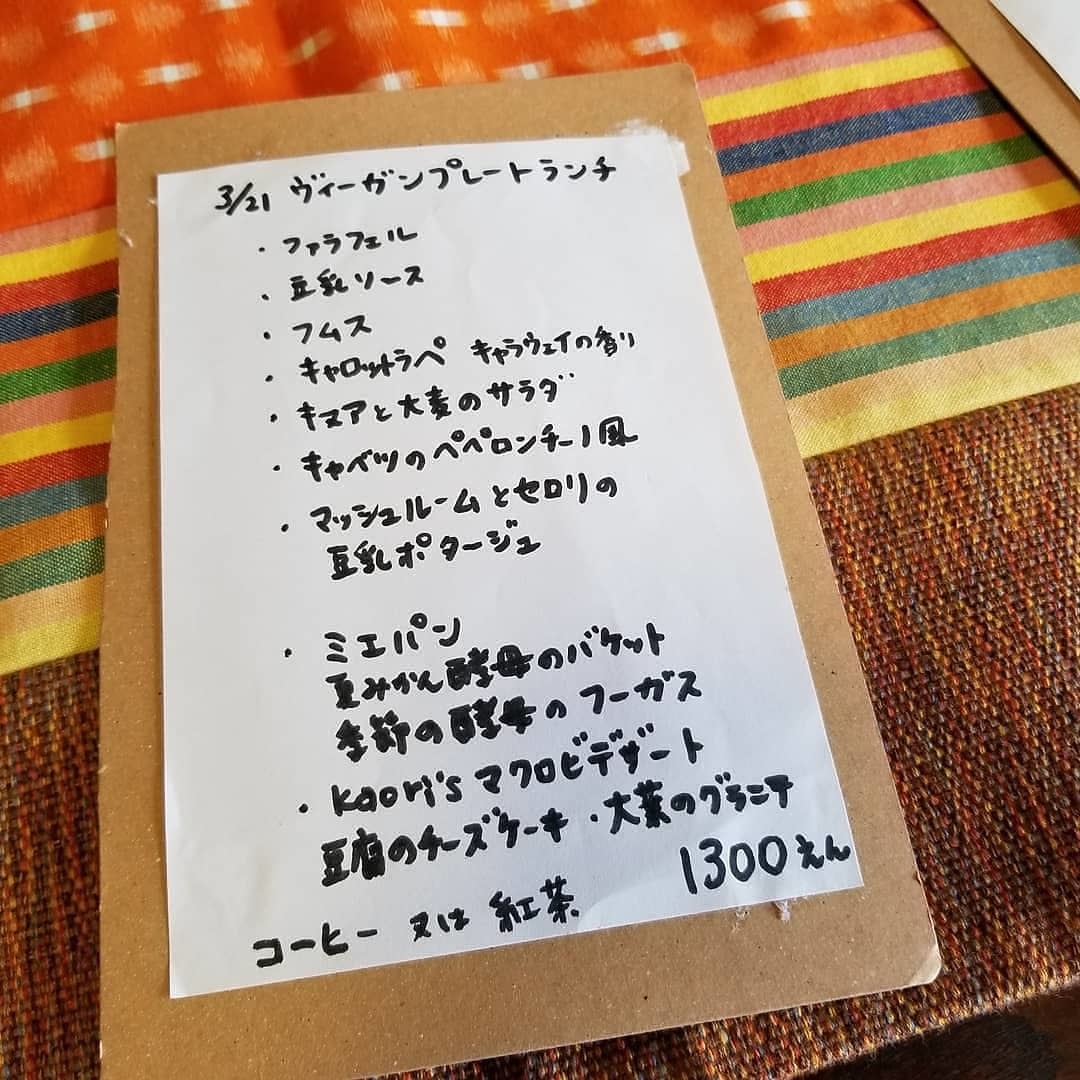 3/21 ヴィーガンプレートランチ
・ファラフェル
・豆乳ソース
・フムス
・キャロットラペ キャラウェイの香り
・キヌアと大麦のサラダ
・キャベツのペペロンチーノ風
・マッシュルームとセロリの
豆乳ポタージュ
・ミエパン
夏みかん酵母のバケット
季節の酵母のフーガス
・Kaori's マクロビデザート
豆腐のチーズケーキ・大葉のグラニテ
1300えん
コーヒー 又は 紅茶